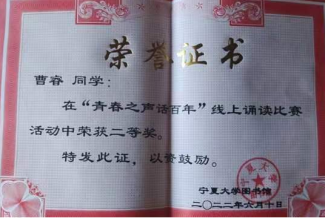 荣誉证书
曹春 同学：
在“青春之声话百年”线上诵读比赛
活动中荣获二等奖。
特发此证，以资鼓励。
宁夏大学图书馆
二〇二二年六月十日